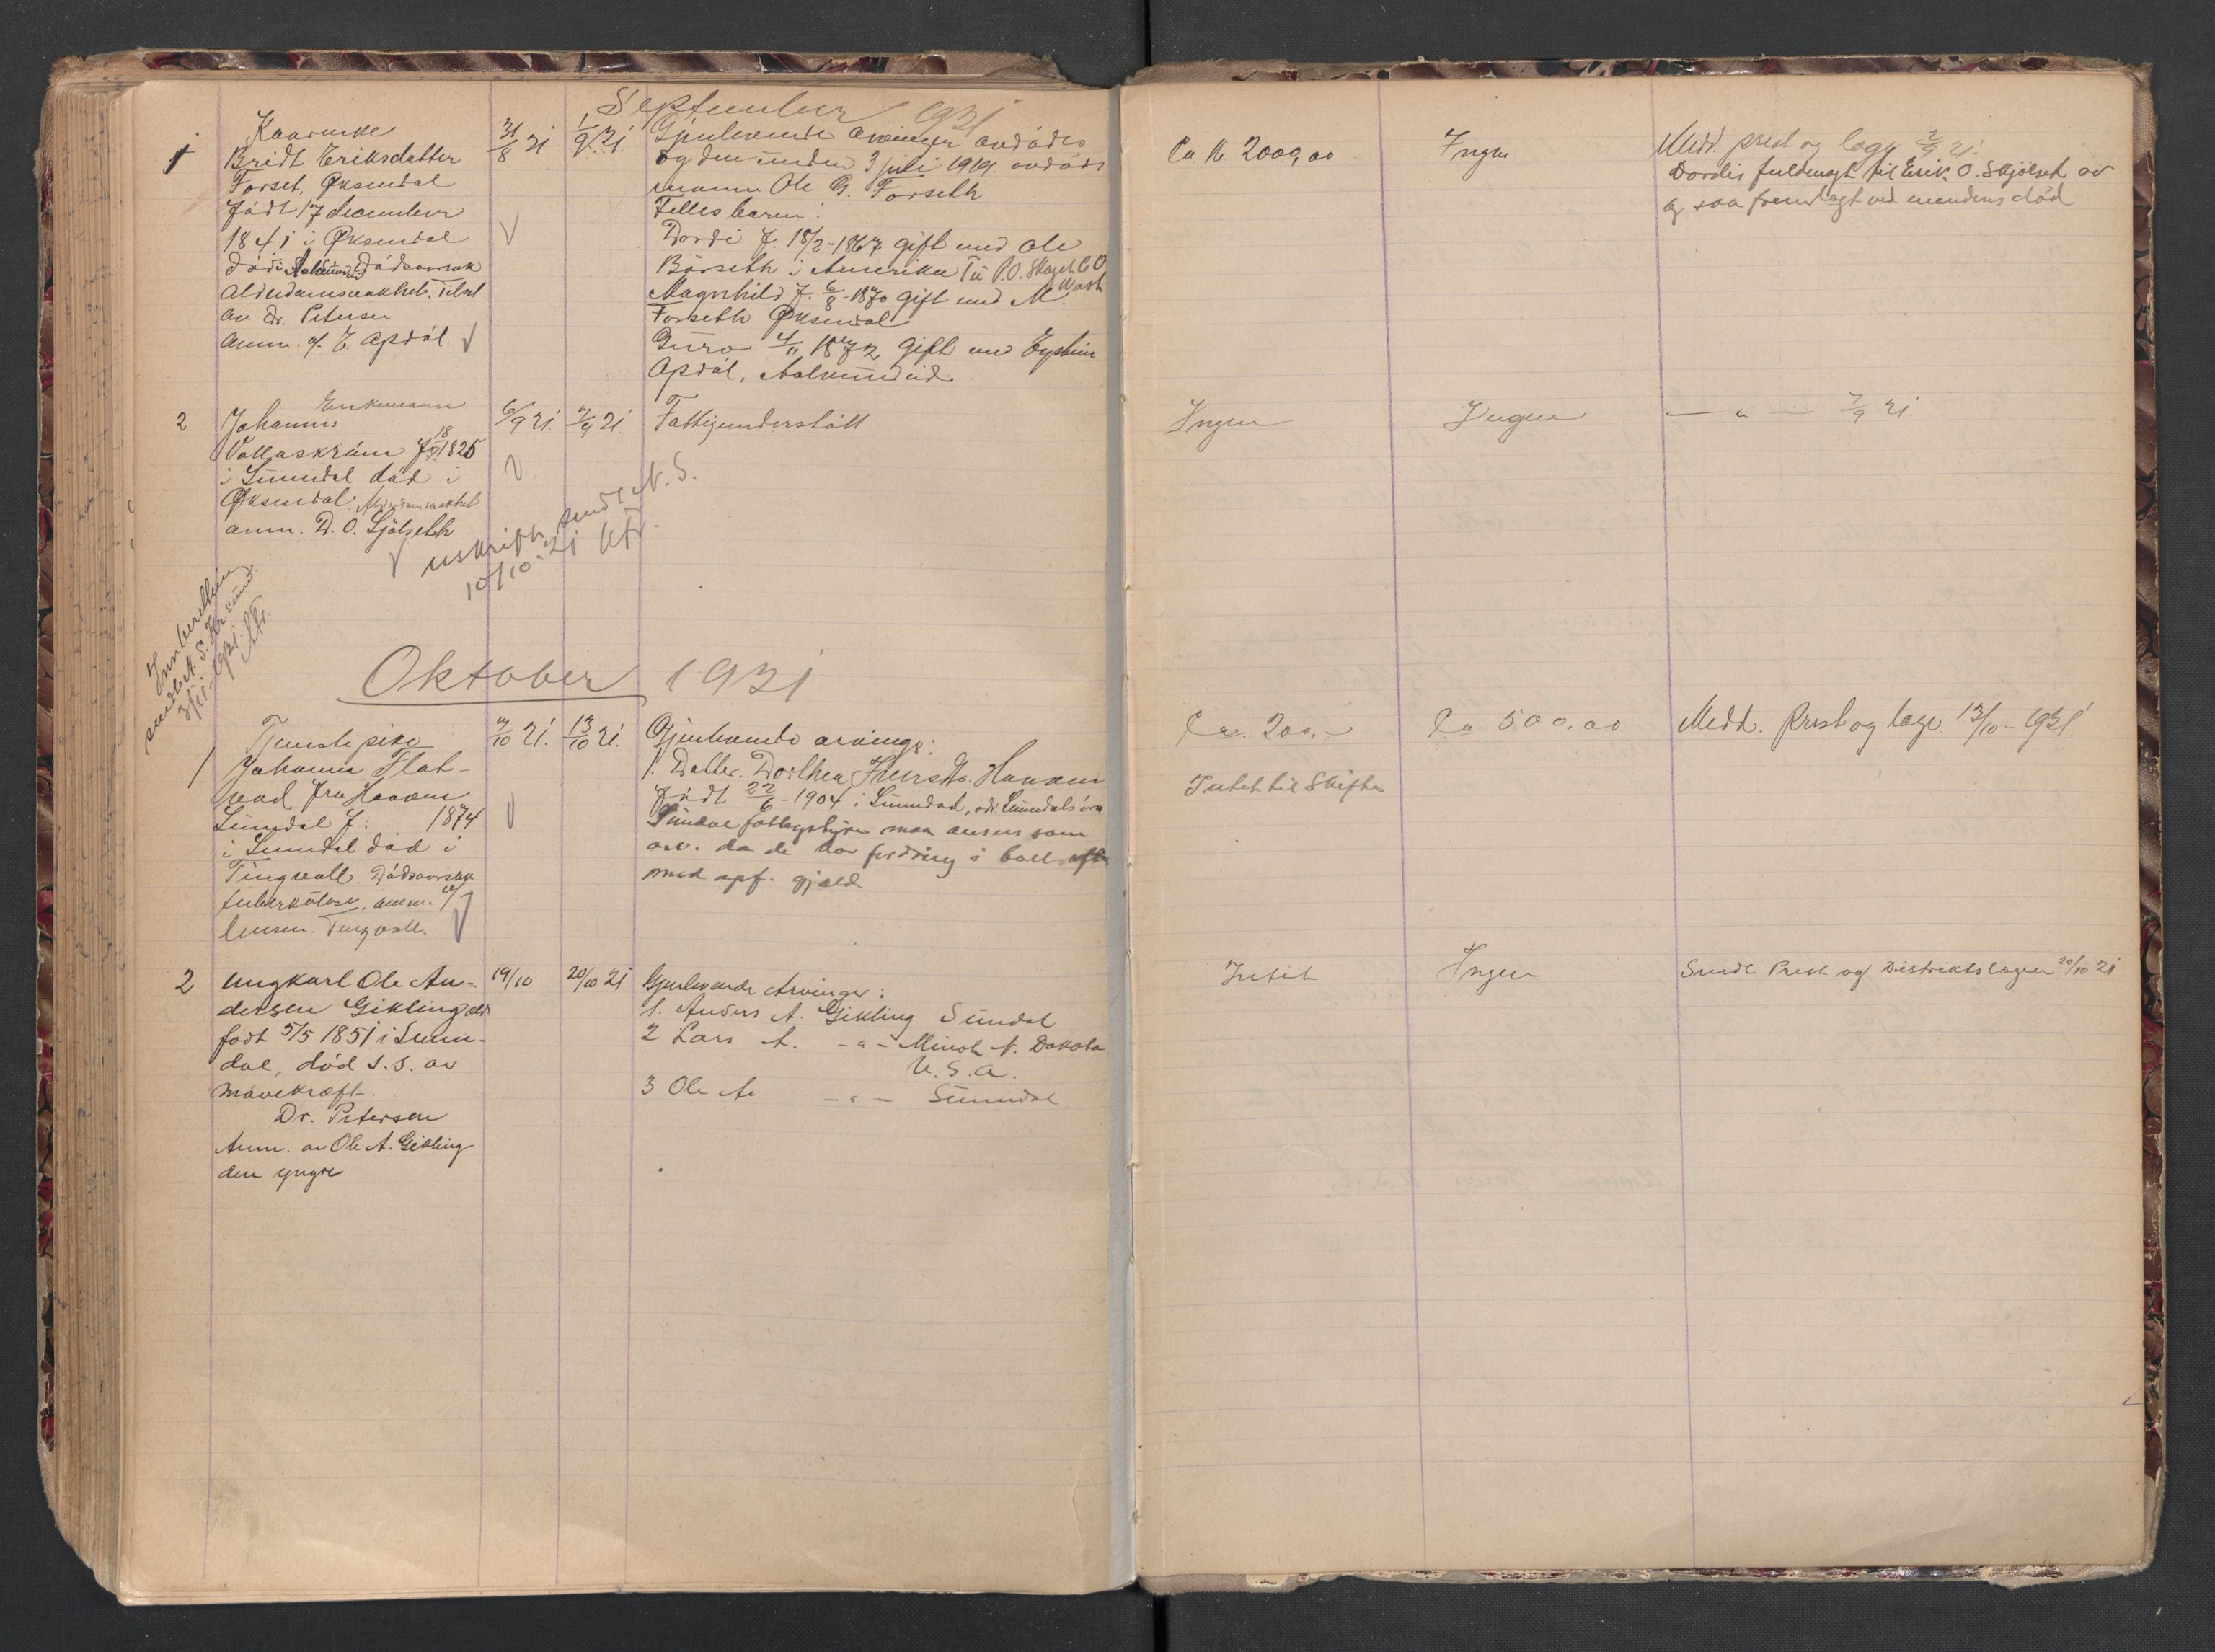 September 1921
1
Kaarenke
Bridt Eriksdatter
Forset, Øksendal
født 17 december
1841 i Øksendal
død i Aalvundeid Dødsaarsak
Alderdomsvakhet. Tilset
av Dr. Petersen
anm. af E. Apdøl
31/8 21
1/9 21.
Gjenlevende arvinger avdødes
og den under 3 juli 1919. avdøds
mann Ole G. Forseth
Felles barn:
Dordi f. 18/2-1867 gift med Ole
Börseth i Amerika P.O. Skagit C O
Wash
Magnhild f. 6/8-1870 gift med M.
Forseth Øksendal
Guro 4/11 1872 gift med Eystein
Apdøl, Aalvundeid
Ca. Kr. 2000,00
Ingen
Medd. prest og læge 2/9 21.
Dordis fuldmagt til Erik O. Skjølset av
og saa fremlagt ved mandens død
2
Enkemann
Johannes
Vollaskrám f. 18 1825
i Sunndal død i
Øksendal. Alderdomsvakhet
anm. D. O. Sjølseth
6/9 21.
7/9 21.
Fattigunderstøtt
Ingen
Ingen
— " — 7/9 21.
uskrift sendt N. S.
10/10 21
Innberetning
sendt N. S. Kr.sund
3/11 1921.
Oktober 1921
1
Tjenestepike
Johanna Flat-
vad fra Hoaven
Sundal f: 1874
i Sunndal død i
Tingvoll. Dødsaarsak
tuberkulose. anm. v/
lensm. Tingvoll.
7/10 21.
13/10 21.
Gjenlevende arvinge:
1. Datter. Dorthea Hansen
født 22/6-1904 i Sunndal, adr. Sunndalsøra
Sundal fattigstyre maa ansees som
arv. da de har fordring i boet
med opf. gjæld
Ca. 200,-
Intet til Skifte
Ca 500,00
Medd. Prest og læge 13/10-1921.
2
Ungkarl Ole An-
dersen Gikling eldr
født 5/5 1851 i Sunn-
dal, død s.s. av
mavekræft.
Dr. Petersen
Anm. av Ole A. Gikling
den yngre
19/10
20/10 21
Gjenlevende Arvinger:
1. Anders A. Gikling Sundal
2 Lars A. -"- Minot N. Dakota
U.S.A.
3 Ole A. -"- Sunndal
Intet
Ingen
Sendt Prest og Distriktslægen 20/10 21